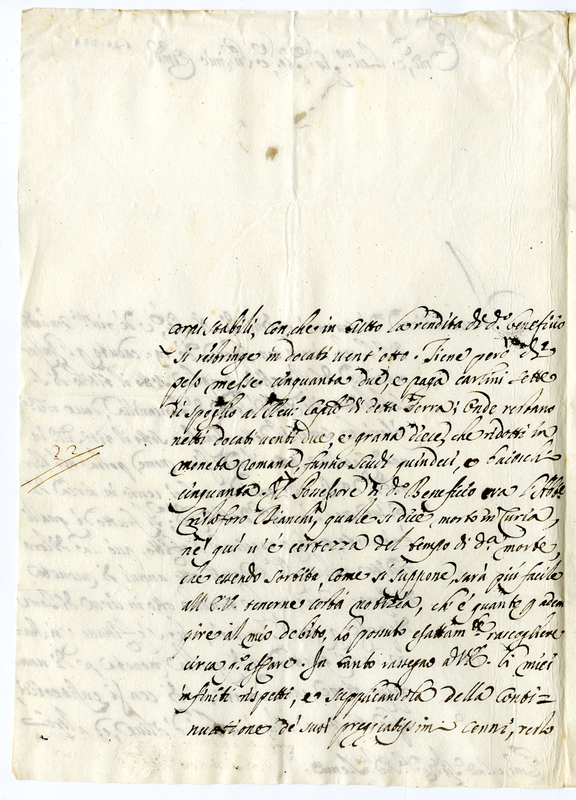 corpi stabili, con che in tutto la rendita di d.º beneficio
si restringe in docati vent'otto. Tiene però di
peso messe cinquanta due, e paga carlini sette
di spoglio al Rev. Capit.º di detta Terra; Onde restano
netti docati venti due, e grana diece, che ridotti in
moneta romana, fanno scudi quindeci, e baiocchi
22
cinquanta. Il Possessore di d.º Beneficio era l'Abb.e
Cristoforo Bianchi, quale si dice morto in Curia,
nè qui v'è certezza del tempo di d.ª morte
che essendo seguita, come si suppone, sarà più facile
all'E.V. tenerne certa notizia, ch'è quanto p adem
pire al mio debito, hò potuto esattam.te raccogliere
circa q.º affare. In tanto rassegno a V.E. li miei
infiniti rispetti, e supplicandola della conti=
nuatione de' suoi pregiatissimi cenni, resto